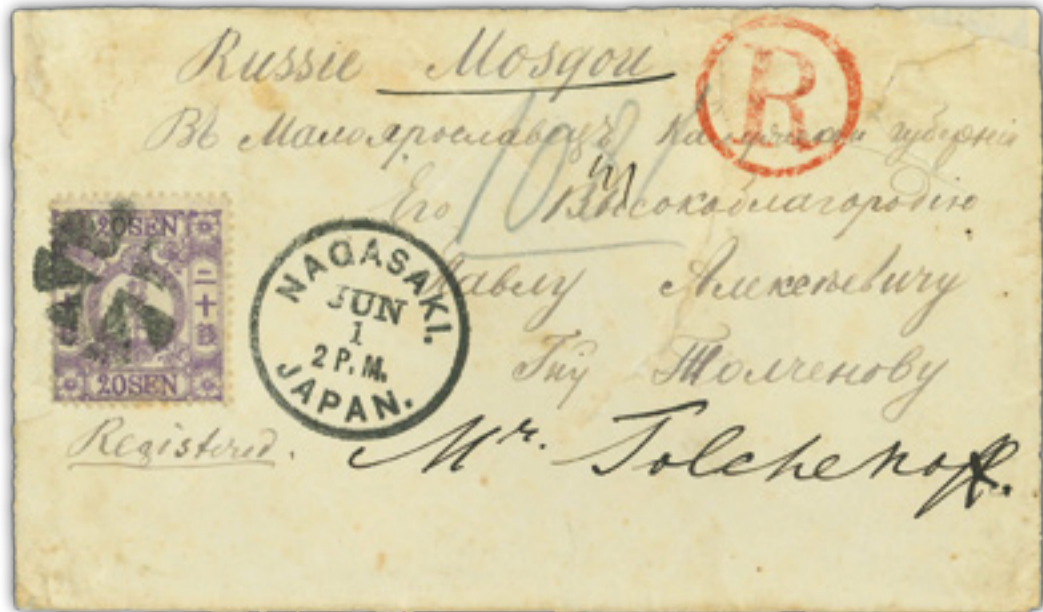 Russie Mosqou
R
Въ Малоярославецъ Калужской губерніи
Его Высокоблагородію
Павлу Алексѣевичу
Гну Толченову
Mr. Tolchenoff.
Registered.
20SEN
二十銭
20SEN
NAGASAKI.
JUN
1
2 P.M.
JAPAN.